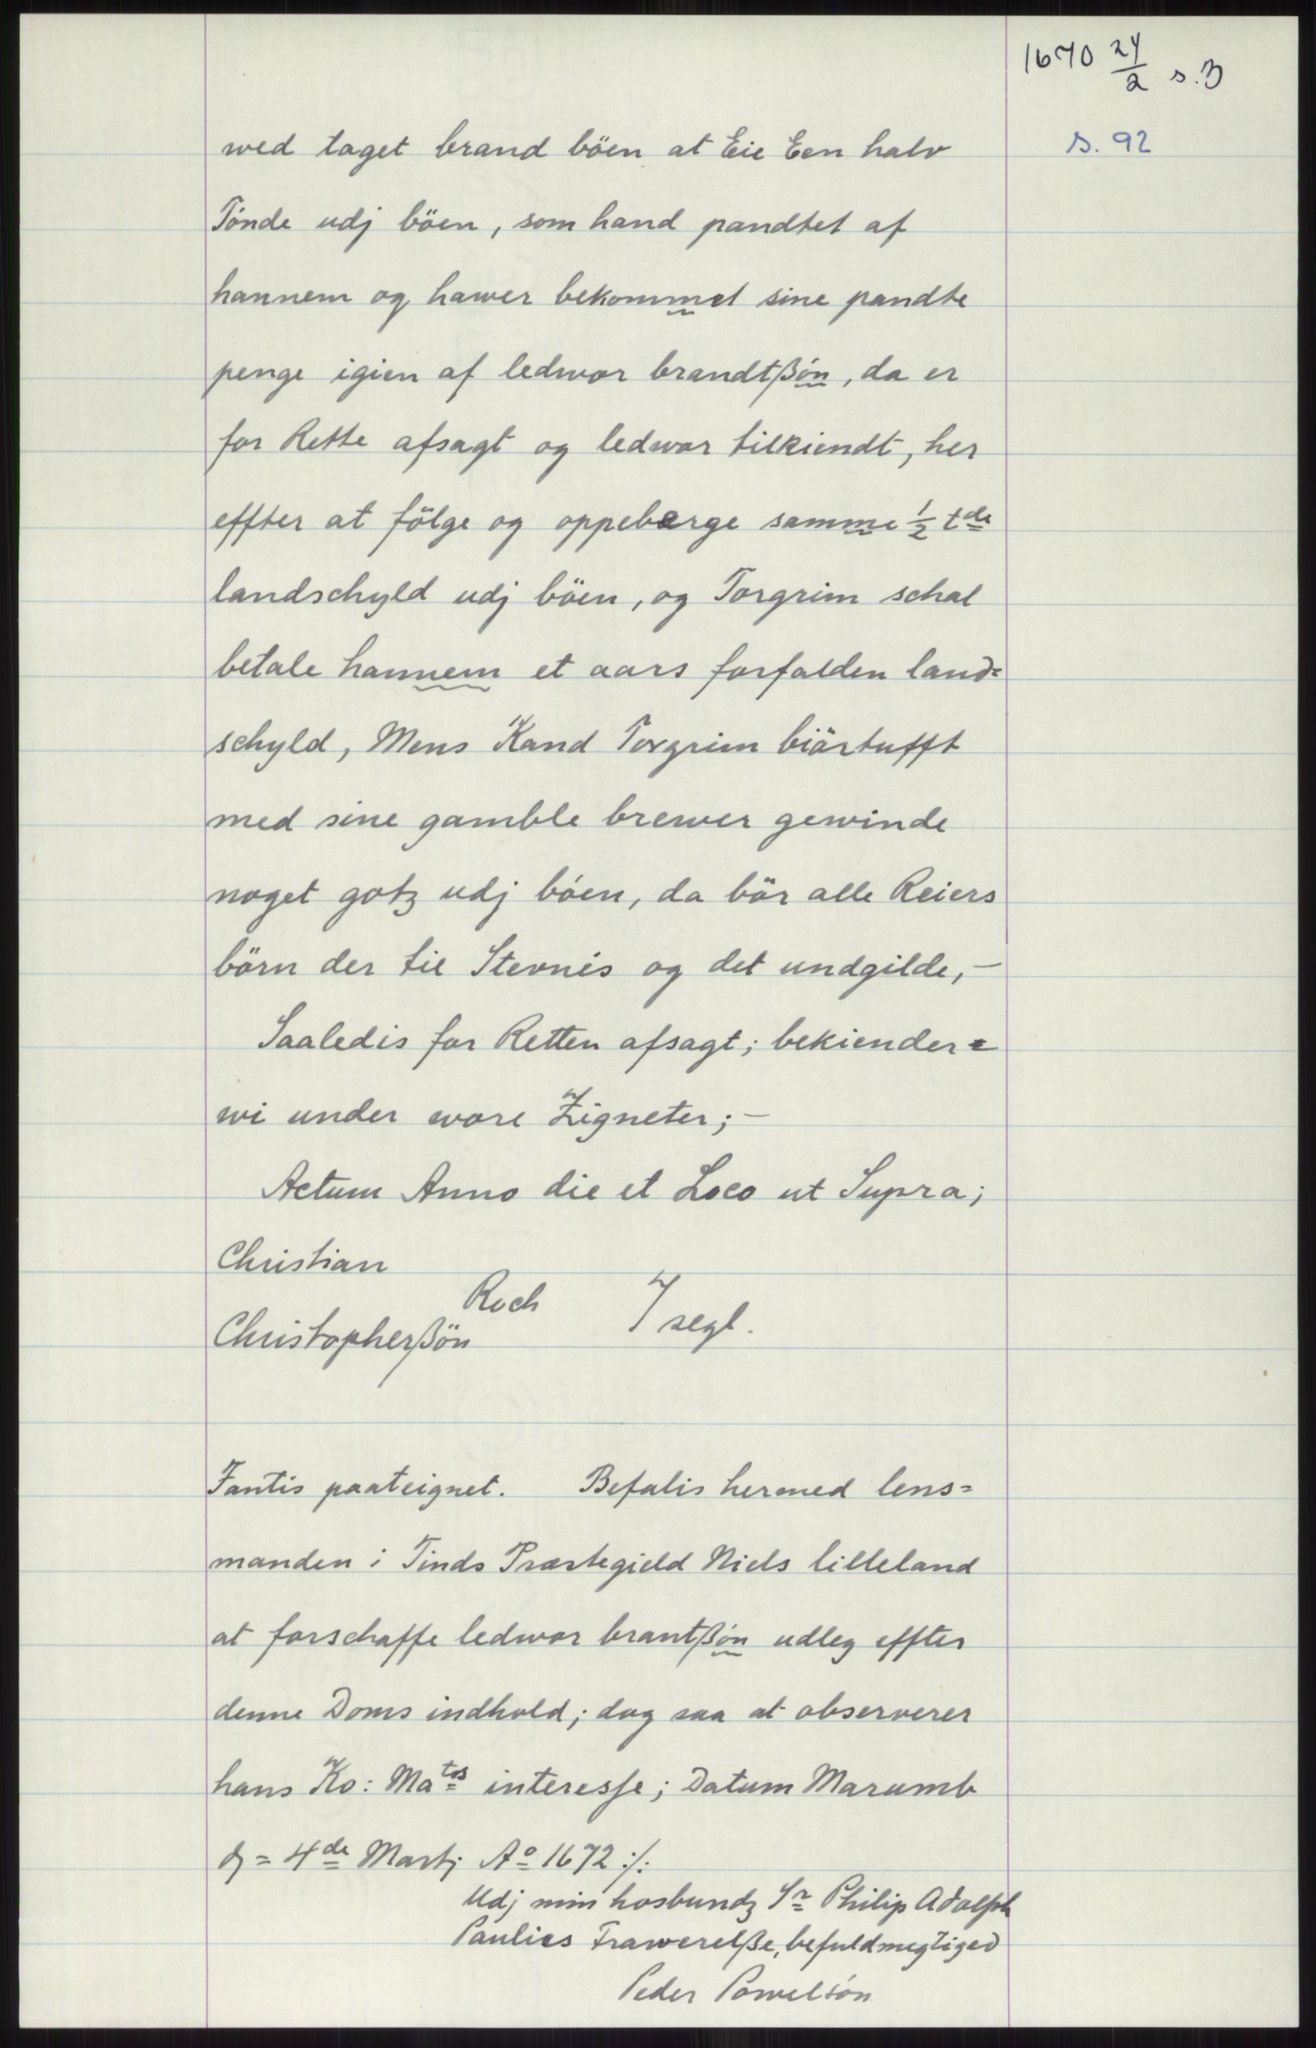 1670 24/2 s. 3
s. 92
wed taget brand böen at Eie Een halv
Tönde udj böen, som hand pandtet af
hannem og hawer bekommet sine pandte
penge igien af ledwor brandtßön, da er
for Rette afsagt og ledwor tilkiendt, her
effter at fölge og oppeberge samme 1/2 tde
landschyld udj böen, og Torgrim schal
betale hannem et aars forfalden land=
schyld, Mens Kand Torgrim biörtufft
med sine gamble brewer gewinde
noget gotz udj böen, da bör alle Reiers
börn der til Stevnis og det undgilde,—
Saaledis for Retten afsagt; bekiender=
wi under wore Zigneter;—
Actum Anno die et Loco ut Supra;
Christian
Roch 7 segl.
Christopherßön
Fantis paateignet. Befalis hermed lens=
manden i Tinds Præstegield Niels lilleland
at forschaffe ledwor brantßön udleg effter
denne Doms indhold; dog saa at observerer
hans Ko: Matos interesse; Datum Marumb
d = 4de Martj Ao 1672 :/:
Udj min hosbundz Sr Philip Adolph
Paulies Frawerelße, befuldmegtiged
Peder Powelsön